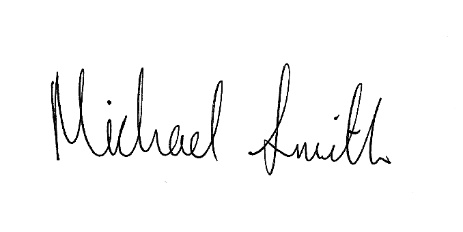 Michael Smith